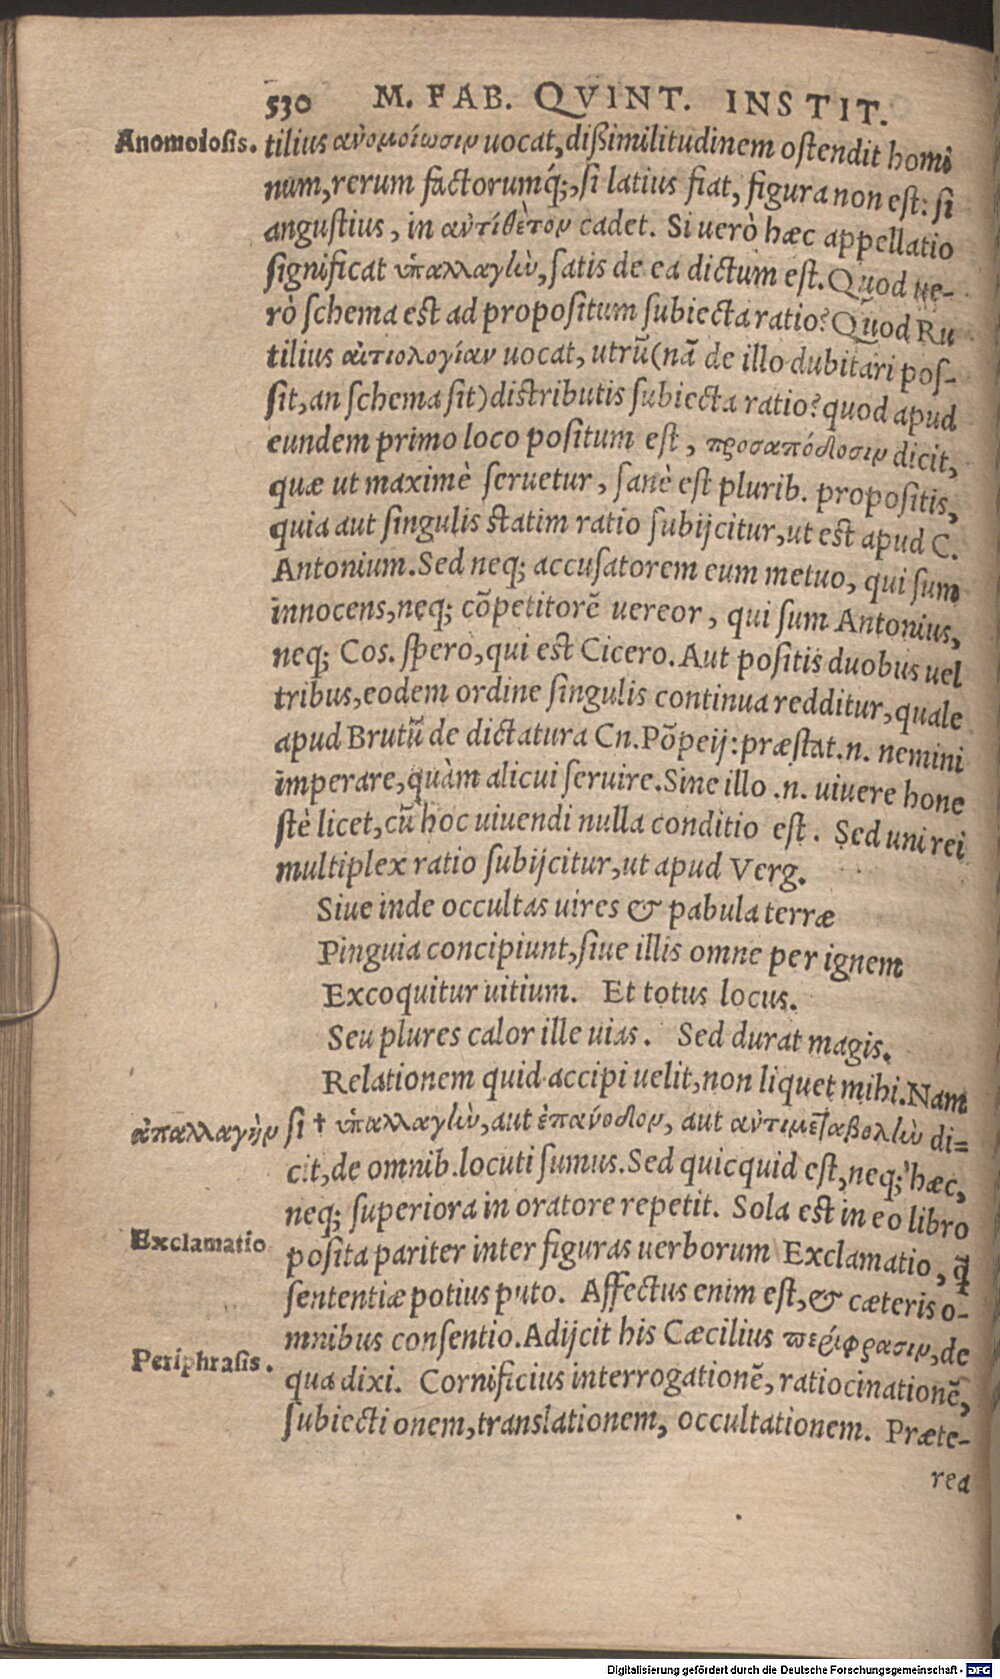 530 M. FAB. QVINT. INSTIT.
Anomoiosis. tilius ἀνομοίωσιν uocat, dißimilitudinem ostendit homi
num, rerum factorumq́;, si latius fiat, figura non est: si
angustius, in ἀντίθετον cadet. Si uerò hæc appellatio
significat ὑπαλλαγὼ, satis de ea dictum est. Quod ue-
rò schema est ad propositum subiecta ratio? Quod Ru
tilius αἰτιολογίαν uocat, utrũ (nã de illo dubitari pos-
sit, an schema sit) distributis subiecta ratio? quod apud
eundem primo loco positum est, προσαπόδοσιν dicit,
quæ ut maximè seruetur, sanè est plurib. propositis,
quia aut singulis statim ratio subijcitur, ut est apud C.
Antonium. Sed neq; accusatorem eum metuo, qui sum
innocens, neq; cõpetitorẽ uereor, qui sum Antonius,
neq; Cos. spero, qui est Cicero. Aut positis duobus uel
tribus, eodem ordine singulis continua redditur, quale
apud Brutũ de dictatura Cn. Põpeij: præstat .n. nemini
imperare, quàm alicui seruire. Sine illo .n. uiuere hone
stè licet, cũ hoc uiuendi nulla conditio est. Sed uni rei
multiplex ratio subijcitur, ut apud Verg.
Siue inde occultas uires & pabula terræ
Pinguia concipiunt, siue illis omne per ignem
Excoquitur uitium. Et totus locus.
Seu plures calor ille uias. Sed durat magis.
Relationem quid accipi uelit, non liquet mihi. Nam
ἀπαλλαγὴν si † ὑπαλλαγὼ, aut ἐπάνοδον, aut ἀντιμεταβολὼ di=
cit, de omnib. locuti sumus. Sed quicquid est, neq; hæc,
neq; superiora in oratore repetit. Sola est in eo libro
Exclamatio posita pariter inter figuras uerborum Exclamatio, q̃
sententiæ potius puto. Affectus enim est, & cæteris o-
mnibus consentio. Adijcit his Cæcilius περίφρασιν, de
Periphrasis. qua dixi. Cornificius interrogationẽ, ratiocinationẽ,
subiectionem, translationem, occultationem. Præte-
rea
Digitalisierung gefördert durch die Deutsche Forschungsgemeinschaft - DFG